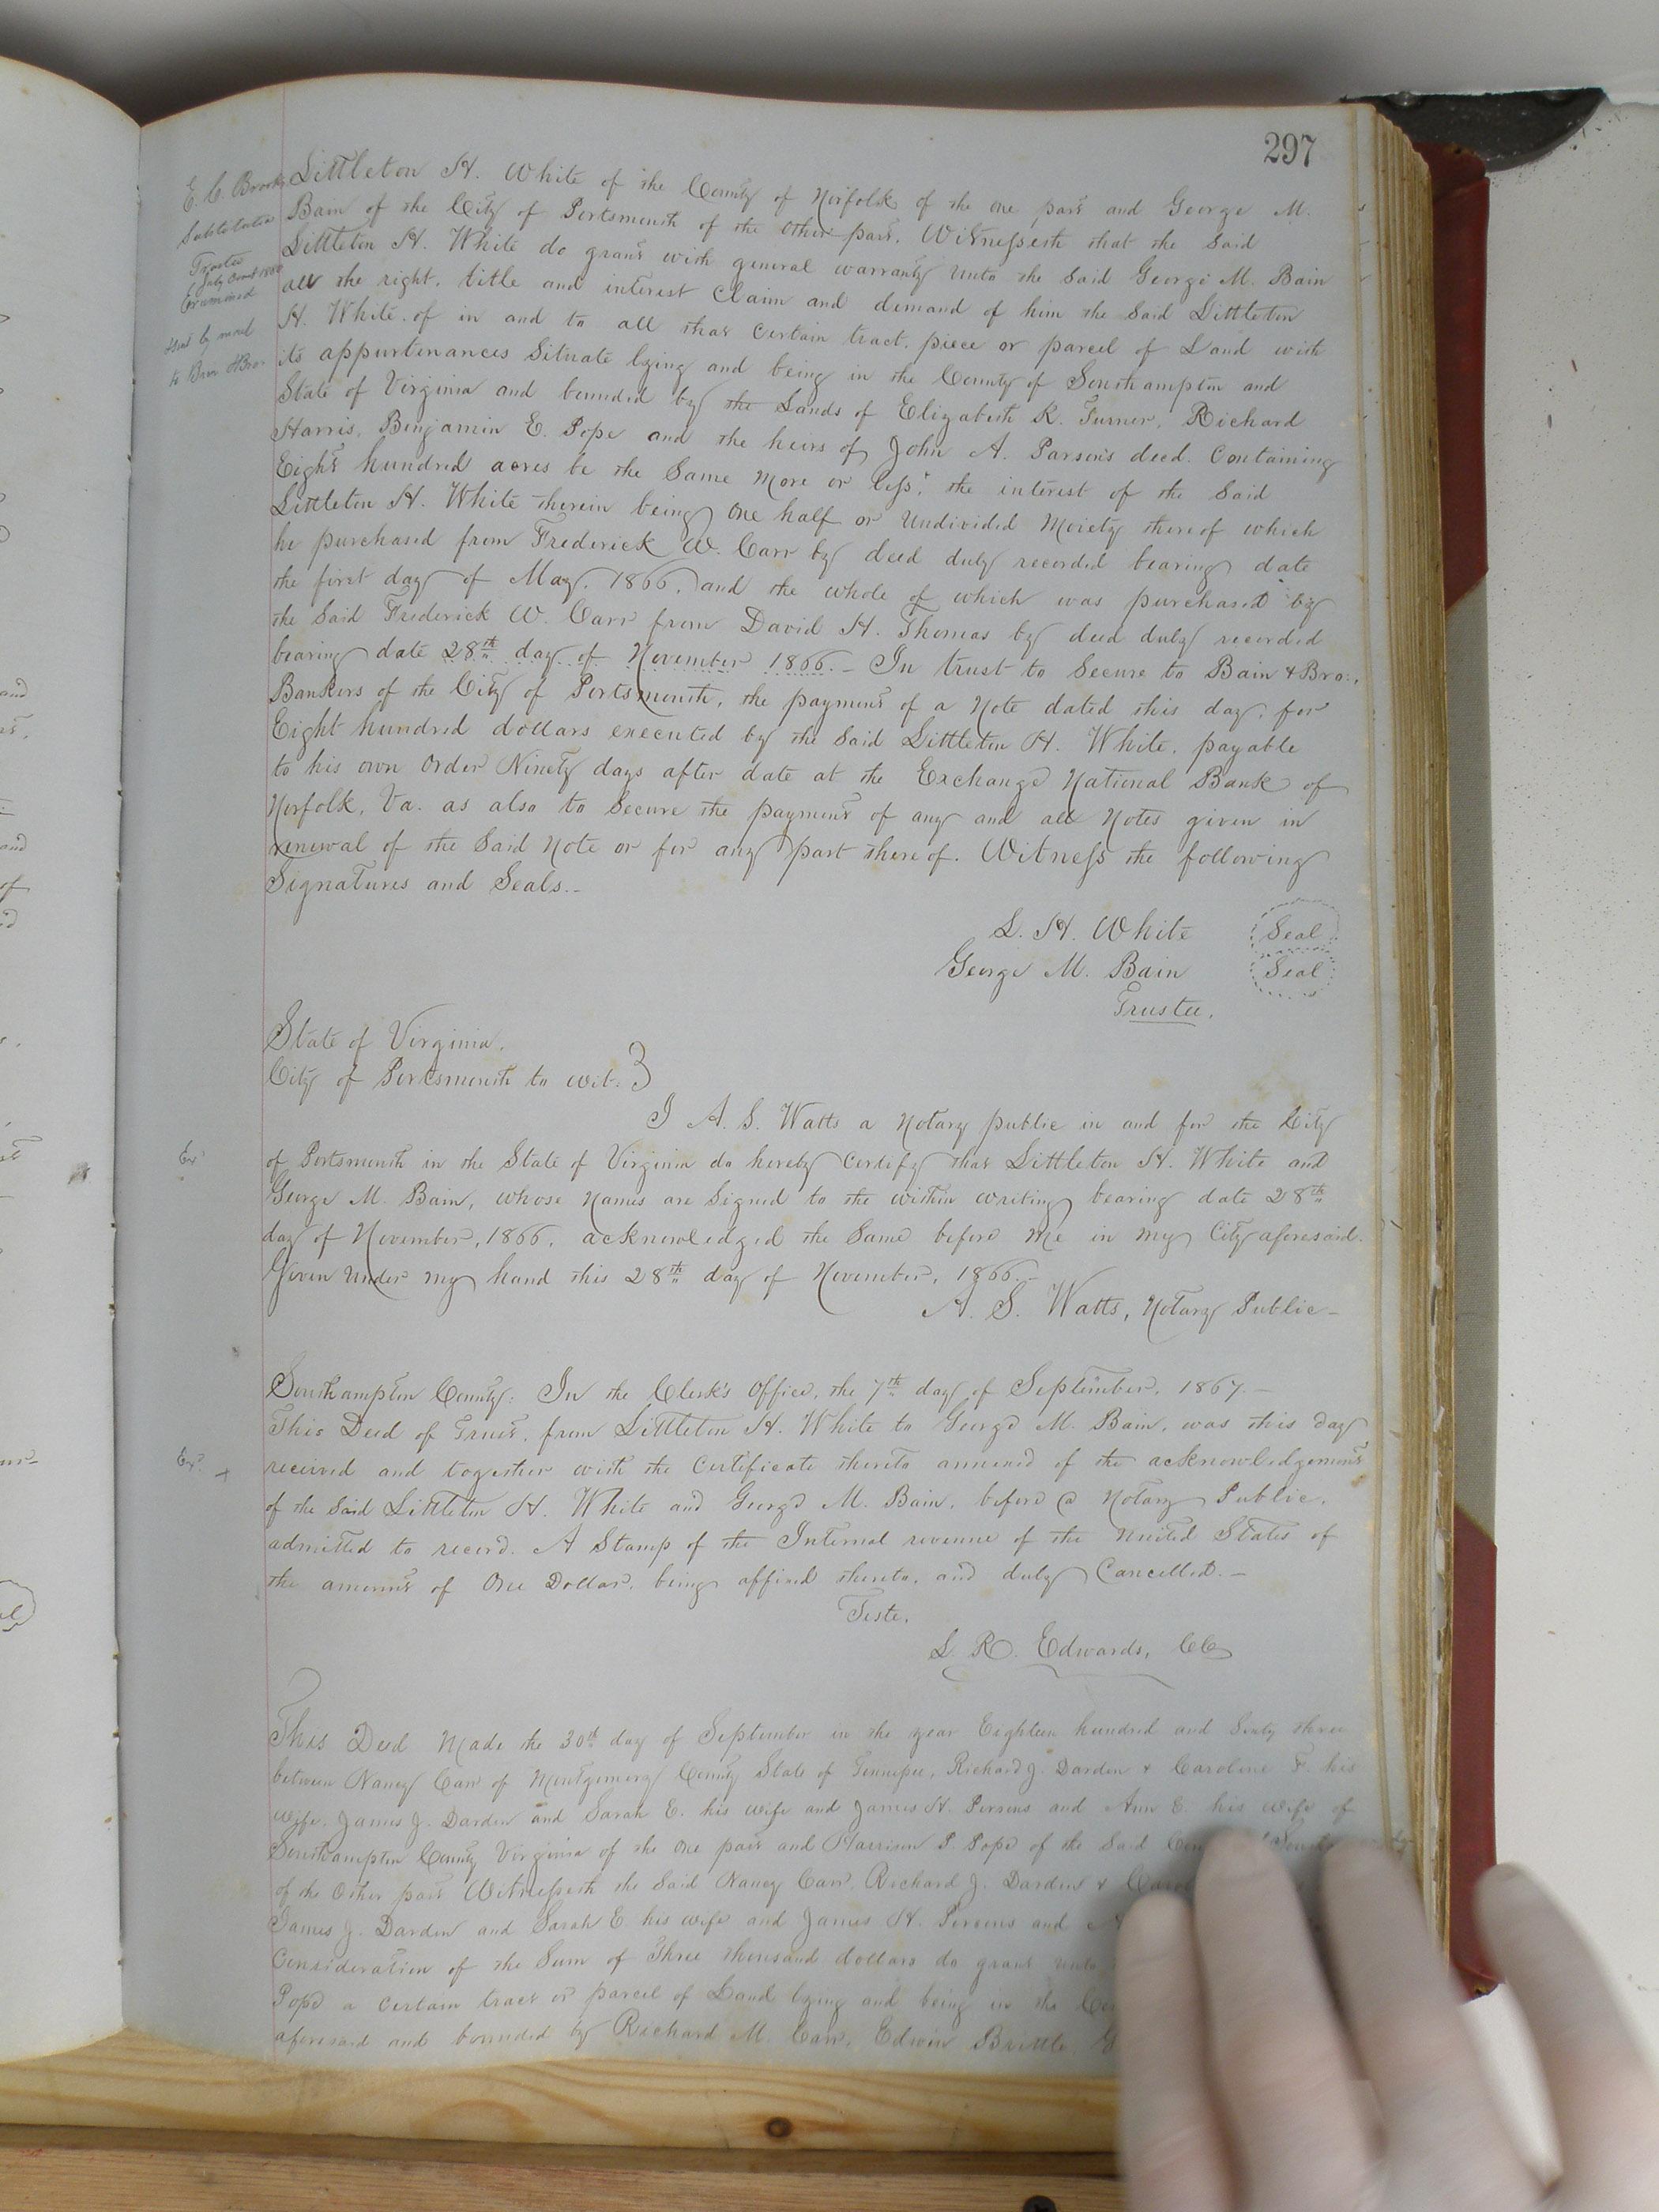 297
E. C. Brooks
Substituted
Trustee
Examined
sent by mail
to Bain & Bro.
Littleton H. White of the County of Norfolk of the one part and George M.
Bain of the City of Portsmouth of the other part. Witnesseth that the Said
Littleton H. White do grant with general warranty unto the Said George M. Bain
all the right, title and interest Claim and demand of him the Said Littleton
H. White of in and to all that Certain tract, piece or parcel of Land with
its appurtenances Situate lying and being in the County of Southampton and
State of Virginia and bounded by the Lands of Elizabeth R. Turner, Richard
Harris, Benjamin E. Pope and the heirs of John A. Parsons deed. Containing
Eight hundred acres be the Same More or less; the interest of the Said
Littleton H. White therein being one half or undivided Moiety thereof which
he purchased from Frederick W. Carr by deed duly recorded bearing date
the first day of May, 1866, and the whole of which was purchased by
the Said Frederick W. Carr from David H. Thomas by deed duly recorded
bearing date 28th day of November 1866.- In trust to Secure to Bain & Bro.,
Bankers of the City of Portsmouth, the payment of a Note dated this day, for
Eight hundred dollars executed by the Said Littleton H. White, payable
to his own Order Ninety days after date at the Exchange National Bank of
Norfolk, Va. as also to Secure the payment of any and all Notes given in
renewal of the Said Note or for any part thereof. Witness the following
Signatures and Seals.-
L. H. White Seal
George M. Bain Seal
Trustee.
State of Virginia.
City of Portsmouth to wit:
I A. S. Watts a Notary public in and for the City
Ex'
of Portsmouth in the State of Virginia do hereby Certify that Littleton H. White and
George M. Bain, whose Names are Signed to the within writing bearing date 28th
day of November, 1866, acknowledged the Same before Me in my City aforesaid.
Given under my hand this 28th day of November, 1866.-
A. S. Watts, Notary Public-
Southampton County: In the Clerk's Office, the 7th day of September, 1867.-
This Deed of Trust, from Littleton H. White to George M. Bain, was this day
Ex'. +
received and together with the Certificate thereto annexed of the acknowledgement
of the Said Littleton H. White and George M. Bain, before a Notary Public,
admitted to record. A Stamp of the Internal revenue of the United States of
the amount of One Dollar, being affixed thereto, and duly Cancelled.-
Teste,
L. R. Edwards, CC
This Deed Made the 30th day of September in the year Eighteen hundred and Sixty three
between Nancy Carr of Montgomery County State of Tennessee, Richard J. Darden & Caroline F. his
wife, James J. Darden and Sarah E. his wife and James H. Persons and Ann E. his wife of
Southampton County Virginia of the one part and Harrison P. Pope of the Said
of the Other part Witnesseth the Said Nancy Carr, Richard J. Darden &
James J. Darden and Sarah E. his wife and James H. Persons and
Consideration of the Sum of Three thousand dollars do grant unto
Pope a Certain tract or parcel of Land lying and being in the
aforesaid and bounded by Richard M. Carr, Edwin Brittle